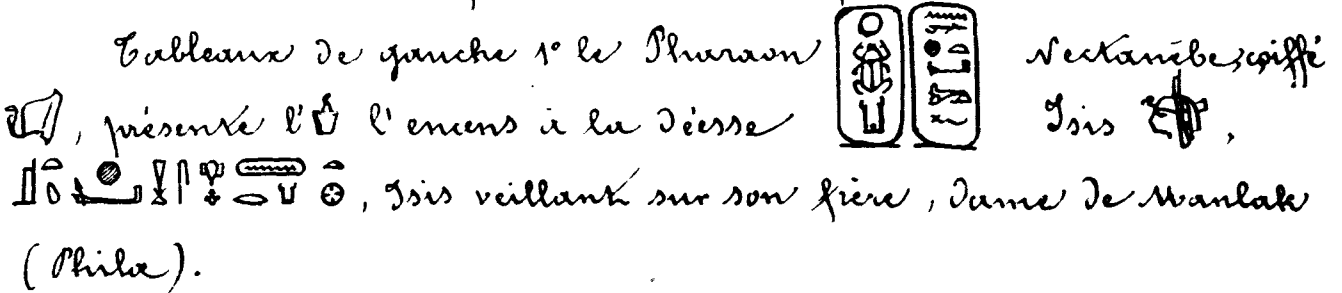 Tableaux de gauche 1° le Pharaon Nectanèbe, coiffé
, présente l' l'encens à la Déesse Isis ,
, Isis veillant sur son frère, Dame de Manlak
(Philæ).